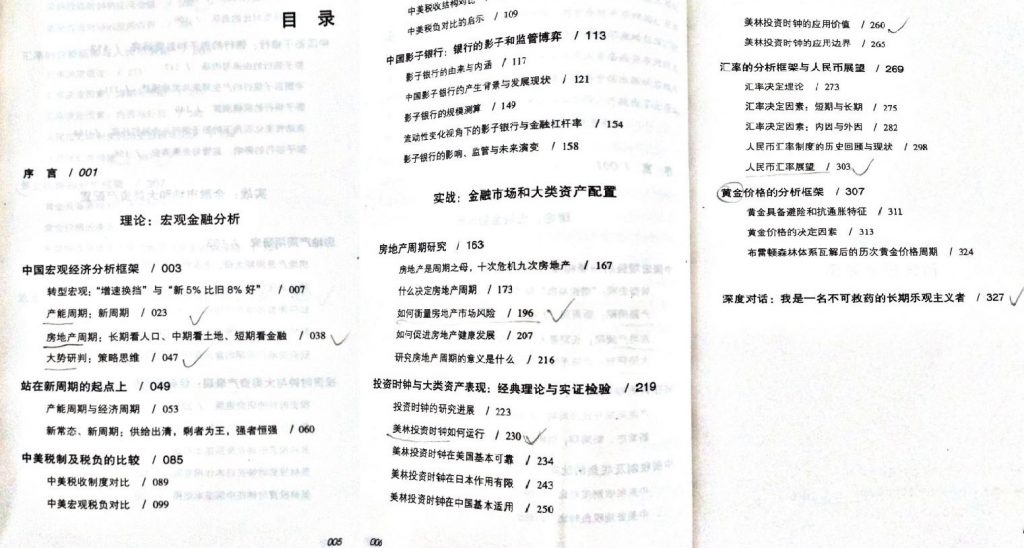 目 录
序 言 / 001
理论：宏观金融分析
中国宏观经济分析框架 / 003
转型宏观：“增速换挡”与“新5%比旧8%好” / 007
产能周期：新周期 / 023
房地产周期：长期看人口、中期看土地、短期看金融 / 038
大势研判：策略思维 / 047
站在新周期的起点上 / 049
产能周期与经济周期 / 053
新常态、新周期：供给出清，剩者为王，强者恒强 / 060
中美税制及税负的比较 / 085
中美税收制度对比 / 089
中美宏观税负对比 / 099
005
中美税收结构对比
中美税负对比的启示 / 109
中国影子银行：银行的影子和监管博弈 / 113
影子银行的由来与内涵 / 117
中国影子银行的产生背景与发展现状 / 121
影子银行的规模测算 / 149
流动性变化视角下的影子银行与金融杠杆率 / 154
影子银行的影响、监管与未来演变 / 158
实战：金融市场和大类资产配置
房地产周期研究 / 163
房地产是周期之母，十次危机九次房地产 / 167
什么决定房地产周期 / 173
如何衡量房地产市场风险 / 196
如何促进房地产健康发展 / 207
研究房地产周期的意义是什么 / 216
投资时钟与大类资产表现：经典理论与实证检验 / 219
投资时钟的研究进展 / 223
美林投资时钟如何运行 / 230
美林投资时钟在美国基本可靠 / 234
美林投资时钟在日本作用有限 / 243
美林投资时钟在中国基本适用 / 250
006
美林投资时钟的应用价值 / 260
美林投资时钟的应用边界 / 265
汇率的分析框架与人民币展望 / 269
汇率决定理论 / 273
汇率决定因素：短期与长期 / 275
汇率决定因素：内因与外因 / 282
人民币汇率制度的历史回顾与现状 / 298
人民币汇率展望 / 303
黄金价格的分析框架 / 307
黄金具备避险和抗通胀特征 / 311
黄金价格的决定因素 / 313
布雷顿森林体系瓦解后的历次黄金价格周期 / 324
深度对话：我是一名不可救药的长期乐观主义者 / 327